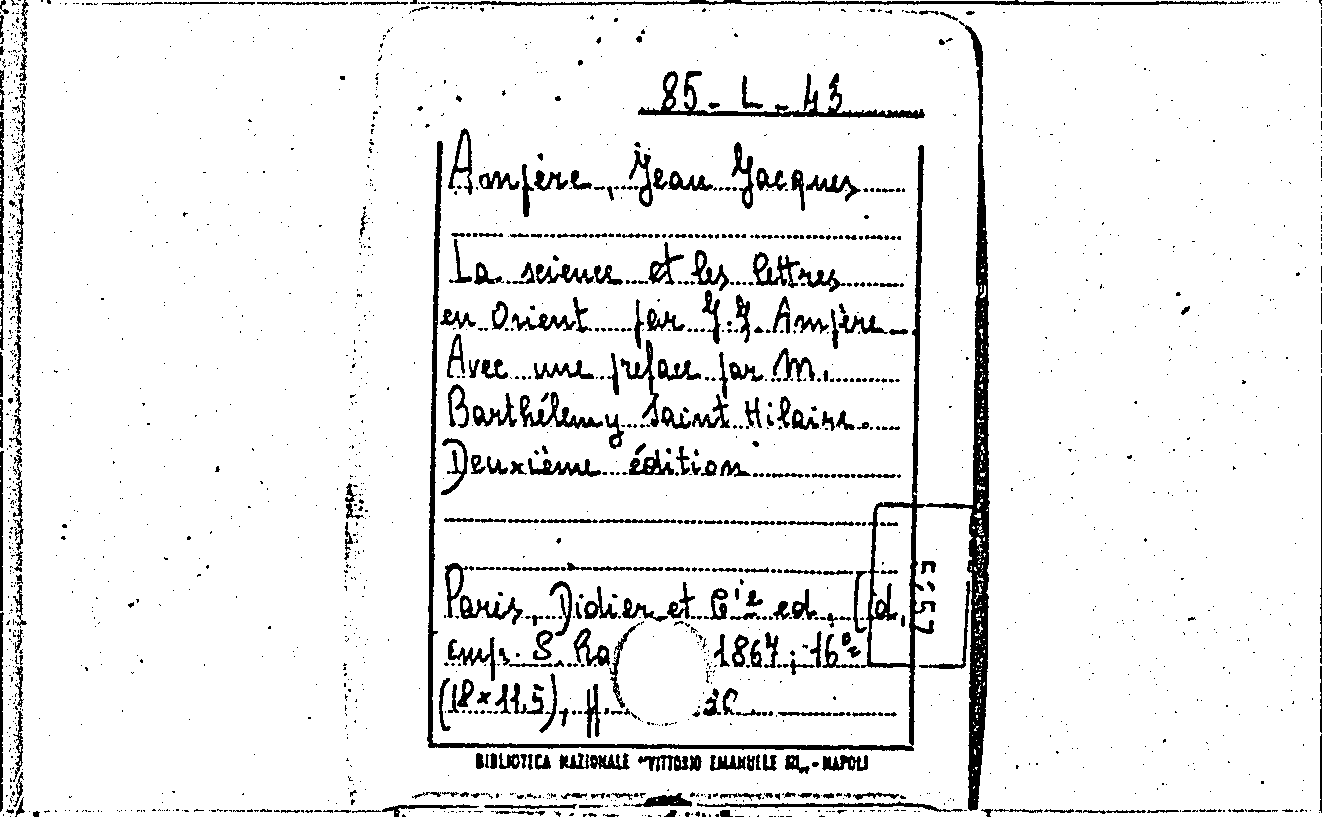 85-L-43
Ampère, Jean Jacques
La science et les lettres
en Orient par J.J. Ampère
Avec une preface par M.
Barthélemy Saint Hilaire.
Deuxième édition
Paris, Didier et Cie ed., (id,
5257
S. Ra 1867; 16°
(18×11,5), pp.
BIBLIOTECA NAZIONALE "VITTORIO EMANUELE III" - NAPOLI